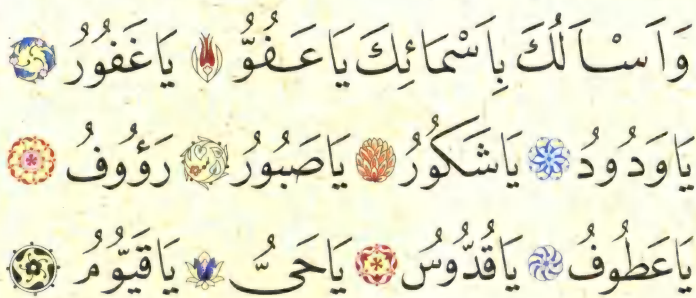 وَاَسْاَلُكَ بِاَسْمَائِكَ يَاعَفُوُّ يَاغَفُورُ
يَاوَدُودُ يَاشَكُورُ يَاصَبُورُ رَؤُوفُ
يَاعَطُوفُ يَاقُدُّوسُ يَاحَىُّ يَاقَيُّومُ